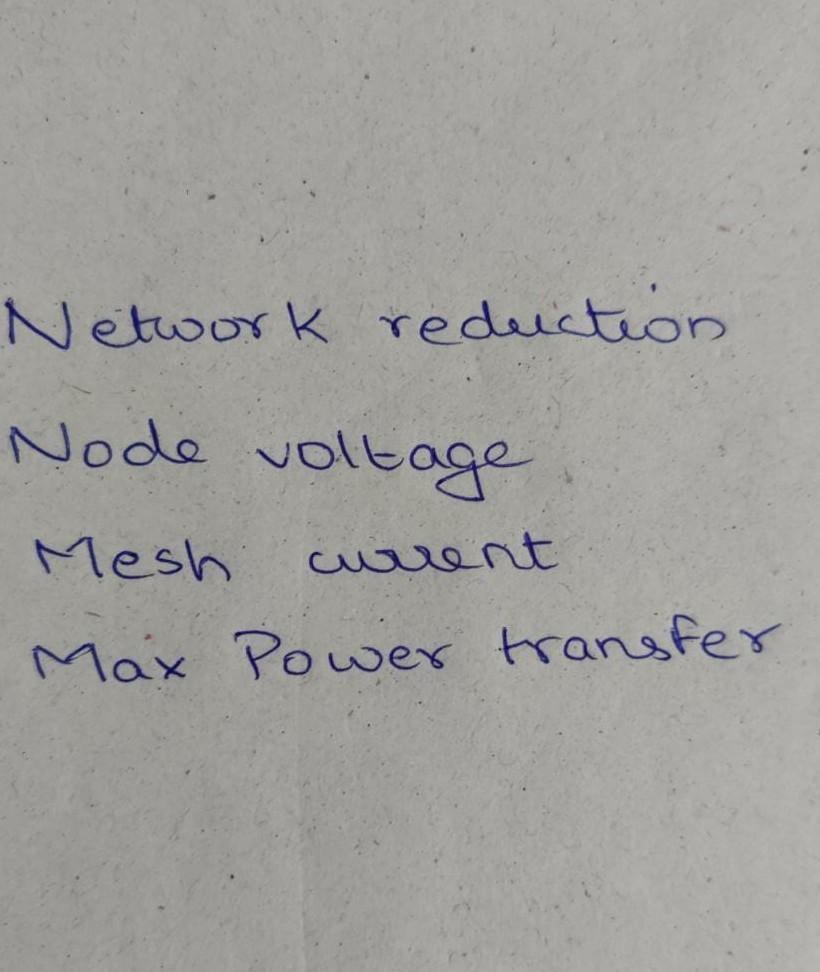 Network reduction
Node voltage
Mesh current
Max Power transfer